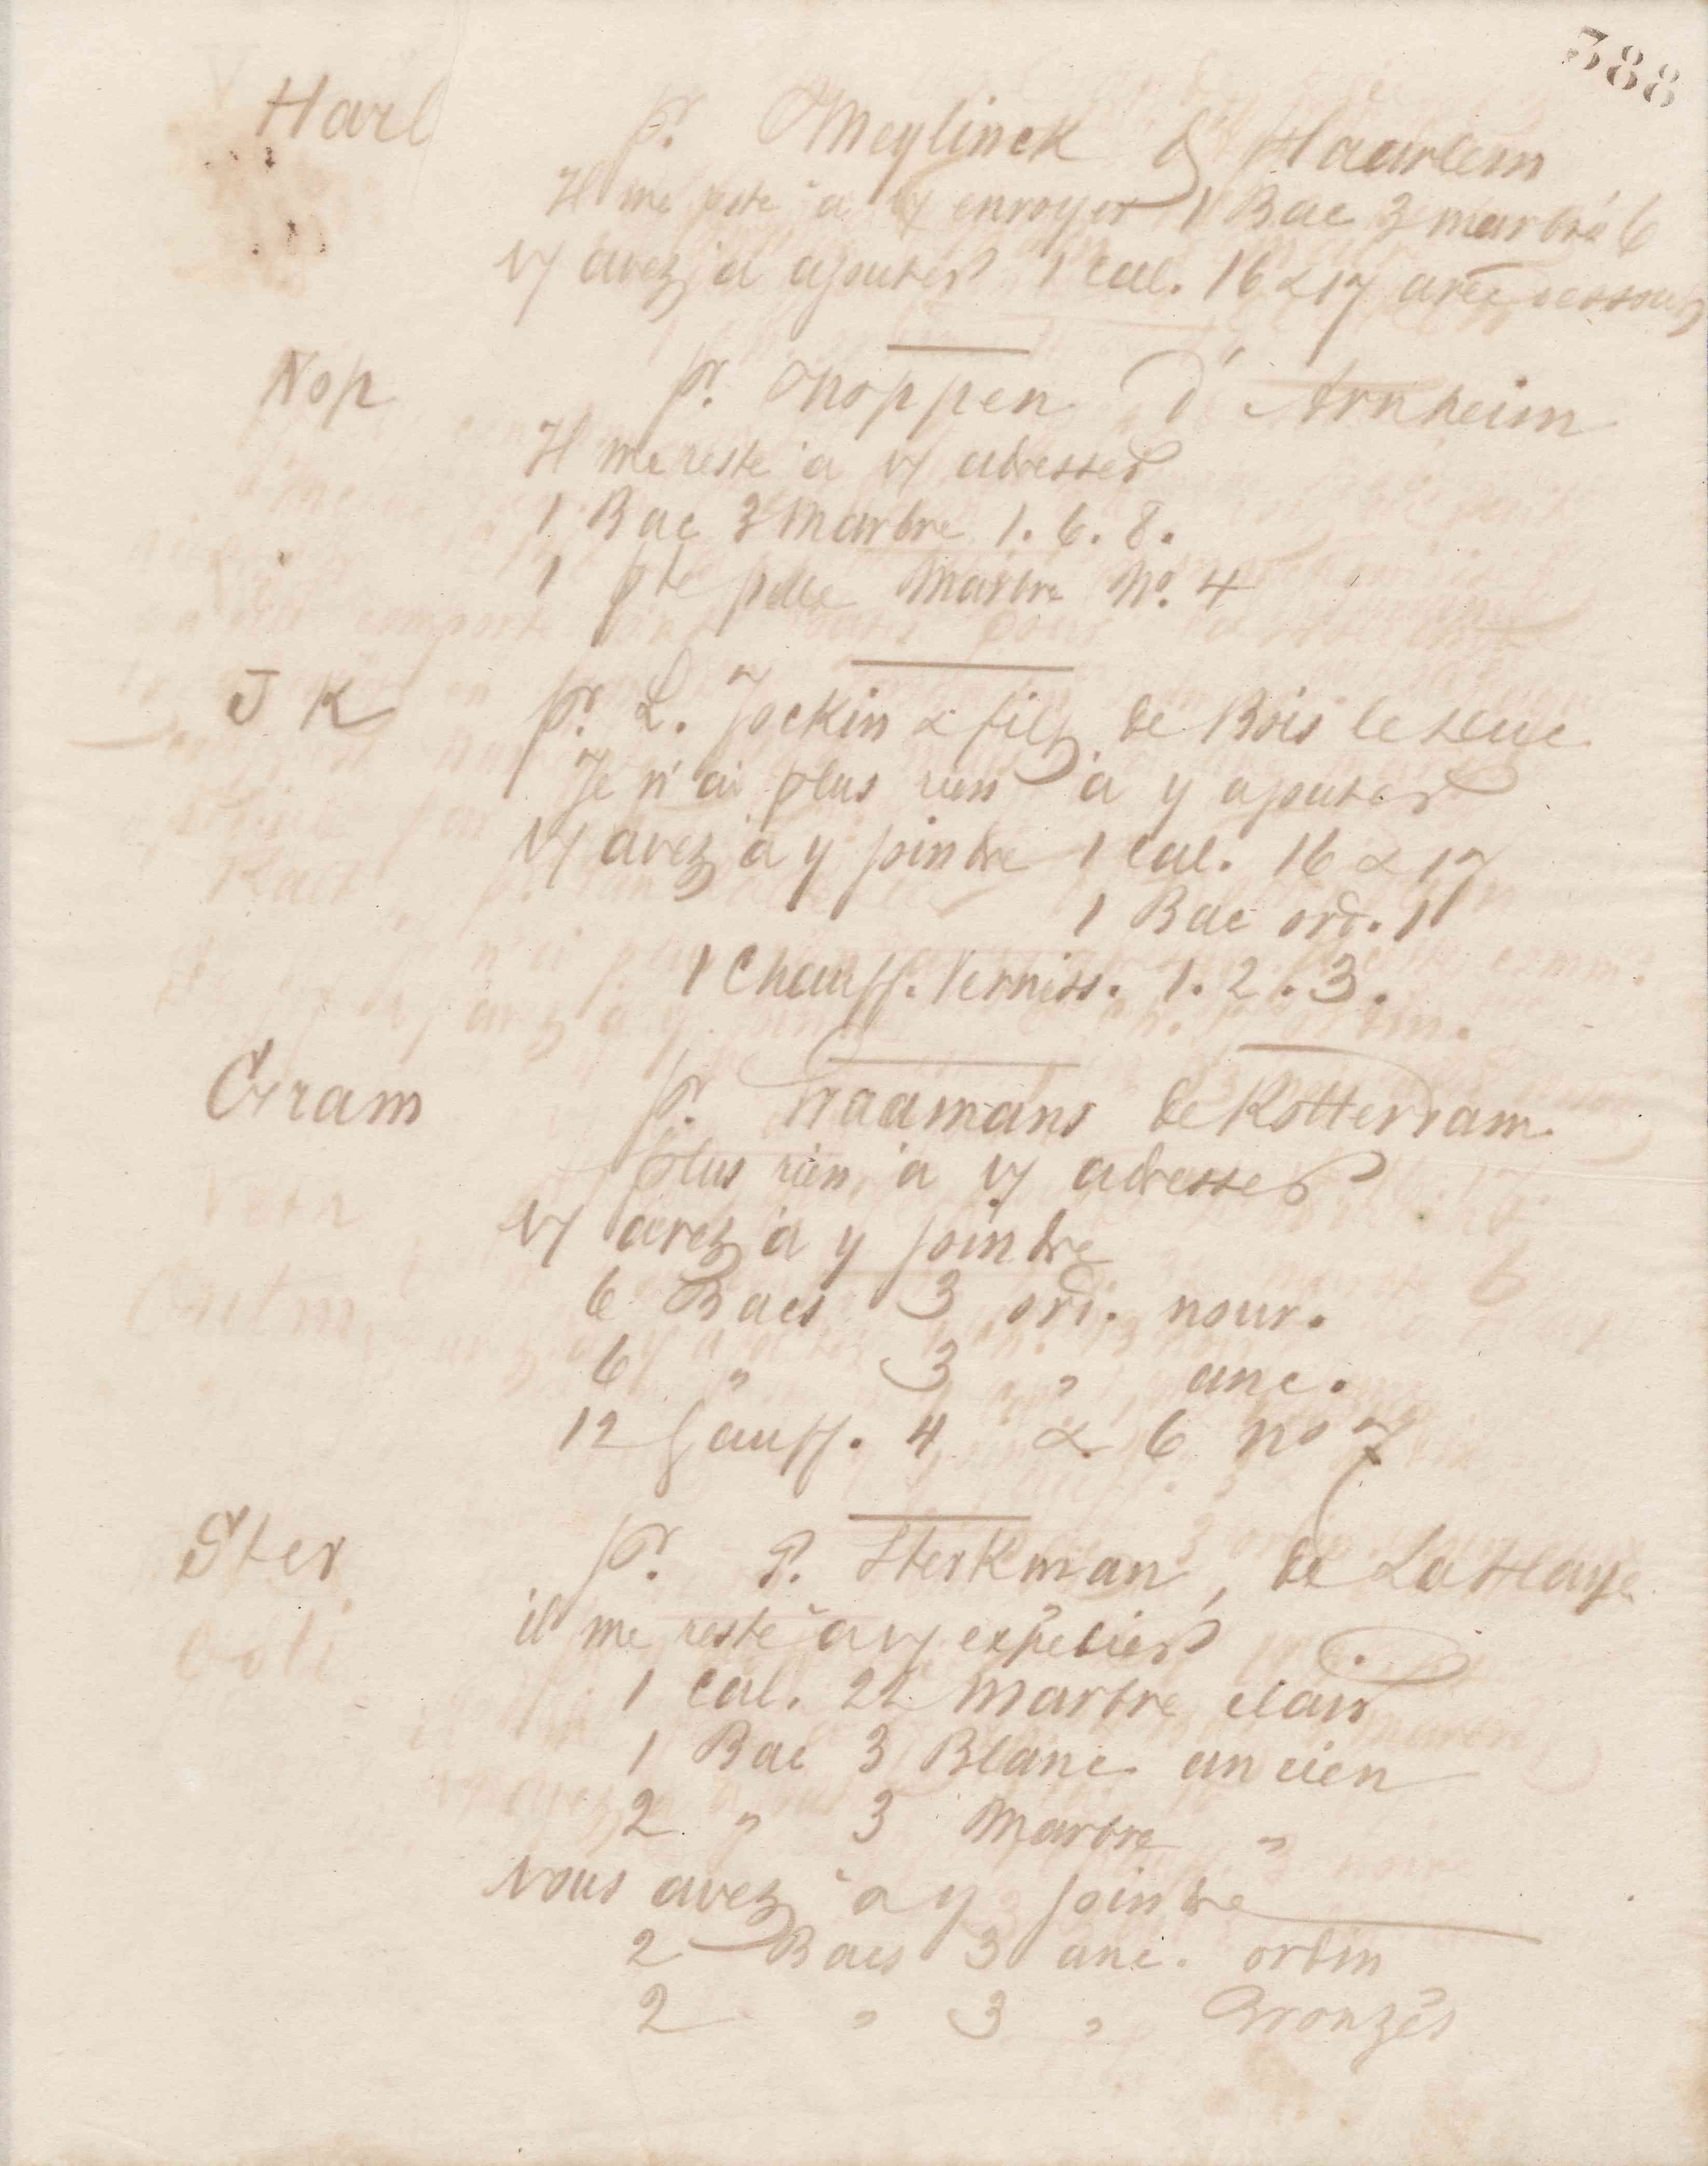 388
Harl pr. Meylinck d'Haarlem
Il me reste à y envoyer 1 Bac 3 marbré 6
Vs avez à ajouter 1 cal. 16 & 17 avec dessous
Nop pr. Noppen d'Arnheim
Il me reste à vs adresser
1 Bac 3 Marbre 1. 6. 8.
1 pte pelle Marbre No. 4
J K pr. L. Jockin & fils de Bois le Duc
Je n'ai plus rien à y ajouter
Vs avez à y joindre 1 cal. 16 & 17
1 Bac ord. 1
1 Chauff. Verniss. 1. 2. 3.
Cram pr. Craamans de Rotterdam
plus rien à vs adresser
Vs avez à y joindre
6 Bacs 3 ord. nouv.
6 " 3 " anc.
12 Gauff. 4 & 6 no 7
Ster pr. P. Sterkman, de La Haye
il me reste à vs expédier
1 cal. 22 marbre clair
1 Bac 3 Blanc ancien
2 " 3 Marbre "
Vous avez à y joindre
2 Bacs 3 anc. ordin
2 " 3 " Bronzés